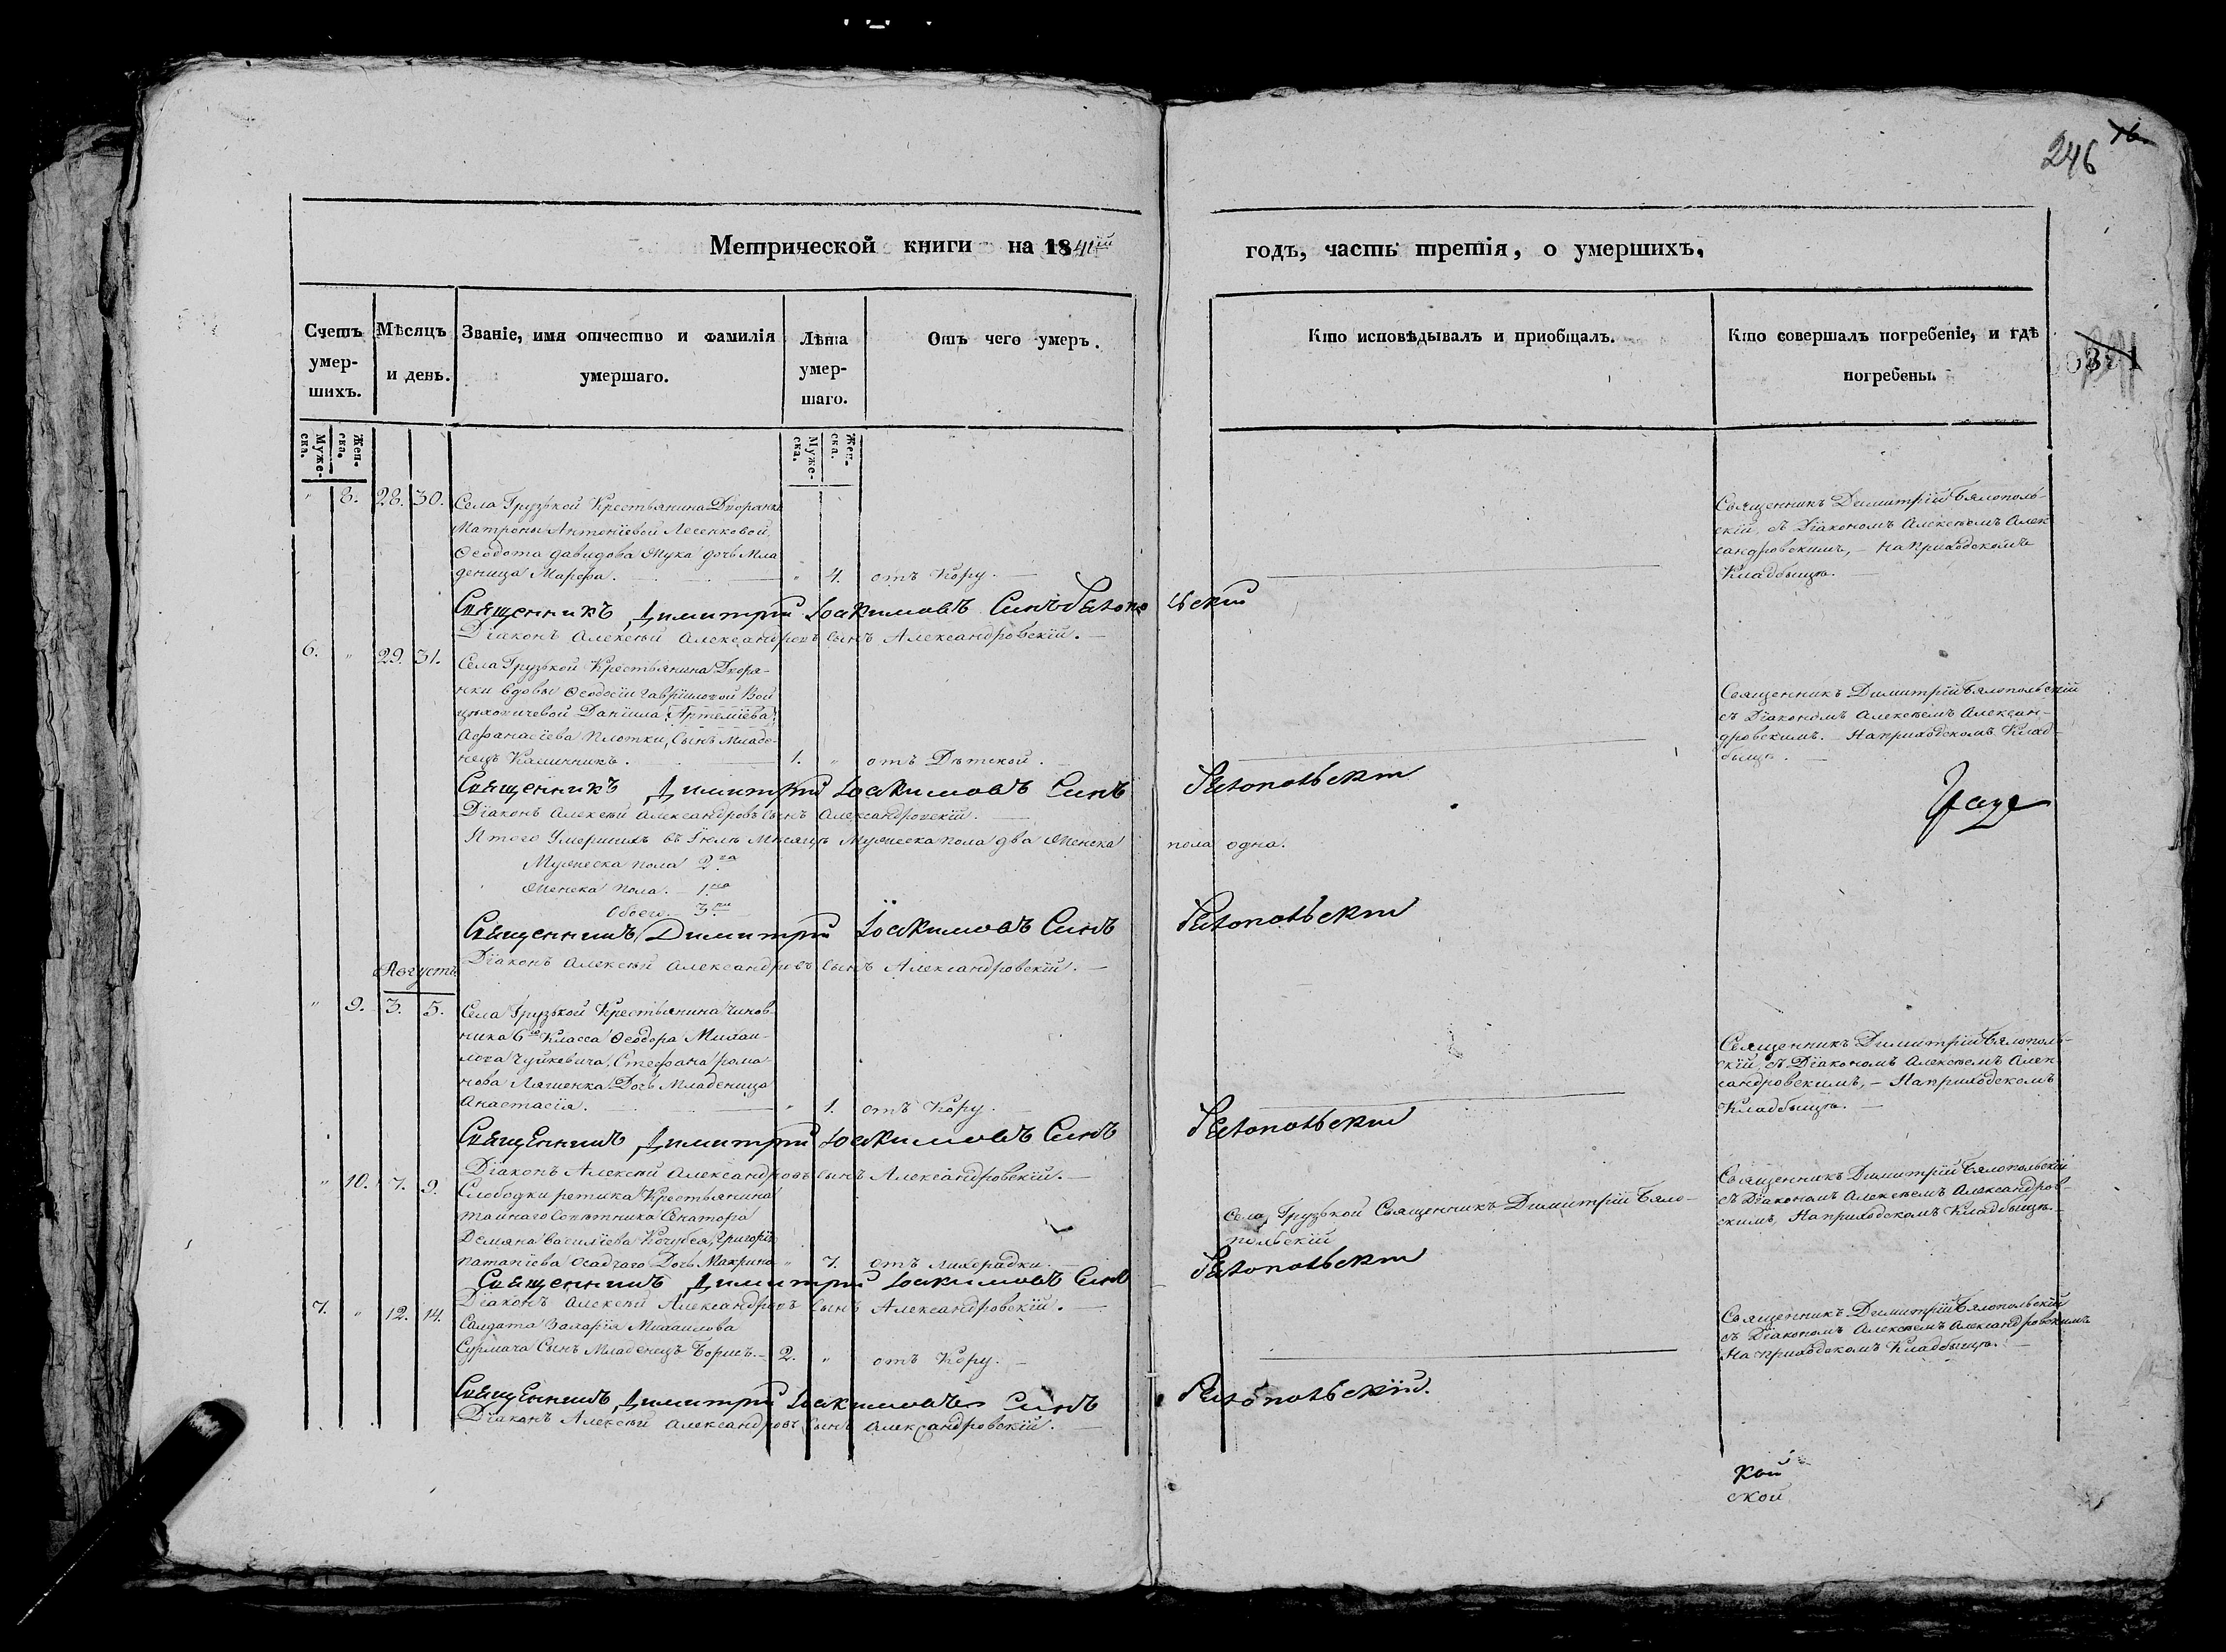 246
Метрической книги на 1841й годъ, часть третія, о умершихъ.
Счетъ умер-шихъ.
Мѣсяцъ и день.
Званіе, имя отчество и фамилія умершаго.
Лѣта умер-шаго.
Отъ чего умеръ.
Кто исповѣдывалъ и пріобщалъ.
Кто совершалъ погребеніе, и гдѣ погребены.
Муже-ска.
Жен-ска.
Муже-ска.
Жен-ска.
" 8. 28. 30.
Села Грузькой Крестьянина Дворянки
Матроны Антоніевой Лесенковой,
Ѳеодота Давидова Жука дочь Мла
деница Марфа. " 4. отъ Кору.
Священникъ Димитрій Бялополь-
скій, съ Діакономъ Алексѣемъ Алек
сандровскимъ, – На приходскомъ
Кладбыщѣ.
Священникъ Димитрій Іоакимовъ Синъ Бялопольскій
Діаконъ Алексѣй Александровъ сынъ Александровскій.
6. " 29. 31.
Села Грузькой Крестьянина Дворя-
нки вдовы Ѳеодосіи Гавріиловой Вой
цѣховичевой Даніила Артеміева
Афанасіева Плотки, Сынъ Младе-
нецъ Калинникъ. 1. " отъ Дѣтской.
Священникъ Димитрій Бялопольскій
съ Діакономъ Алексѣемъ Алексан-
дровскимъ. На приходскомъ Клад-
быщѣ.
Священникъ Димитрій Іоакимовъ Синъ Бялопольскій
Діаконъ Алексѣй Александровъ Сынъ Александровскій.
Итого Умершихъ въ Іюлѣ Мѣсяцѣ Мужеска пола два Женска пола одна.
Мужеска пола 2ва
Женска пола. – 1на
Обоего. 3ри
Священникъ Димитрій Іоакимовъ Синъ Бялопольскій
Діаконъ Алексѣй Александровъ сынъ Александровскій.
Августъ
" 9. 3. 5.
Села Грузькой Крестьянина Чинов-
ника 6го Класса Ѳеодора Михаи-
лова Чуйкевича, Стефана Рома-
нова Лященка Дочь Младеница
Анастасія. " 1. отъ Кору.
Священникъ Димитрій Бялополь-
скій, съ Діакономъ Алексѣемъ Алек
сандровскимъ, – На приходскомъ
Кладбыщѣ.
Священникъ Димитрій Іоакимовъ Синъ Бялопольскій
Діаконъ Алексѣй Александровъ Сынъ Александровскій.
" 10. 7. 9.
Слободки Ретика Крестьянина
Тайнаго Совѣтника Сенатора
Демяна Василіева Кочубея, Григорія
Патапіева Осадчаго Дочь Макрина " 7. отъ лихорадки.
Села Грузькой Священникъ Димитрій Бяло-
польскій
Священникъ Димитрій Бялопольскій
съ Діакономъ Алексѣемъ Александров-
скимъ, На приходскомъ Кладбыщѣ.
Священникъ Димитрій Іоакимовъ Синъ Бялопольскій
Діаконъ Алексѣй Александровъ сынъ Александровскій.
7. " 12. 14.
Салдата Захарія Михаилова
Сурмача Сынъ Младенецъ Борисъ. 2. " отъ Кору.
Священникъ Димитрій Бялопольскій
съ Діакономъ Алексѣемъ Александровскимъ
На приходскомъ Кладбыщѣ.
Священникъ Димитрій Іоакимовъ Синъ Бялопольскій.
Діаконъ Алексѣй Александровъ Сынъ Александровскій.
кой
ской